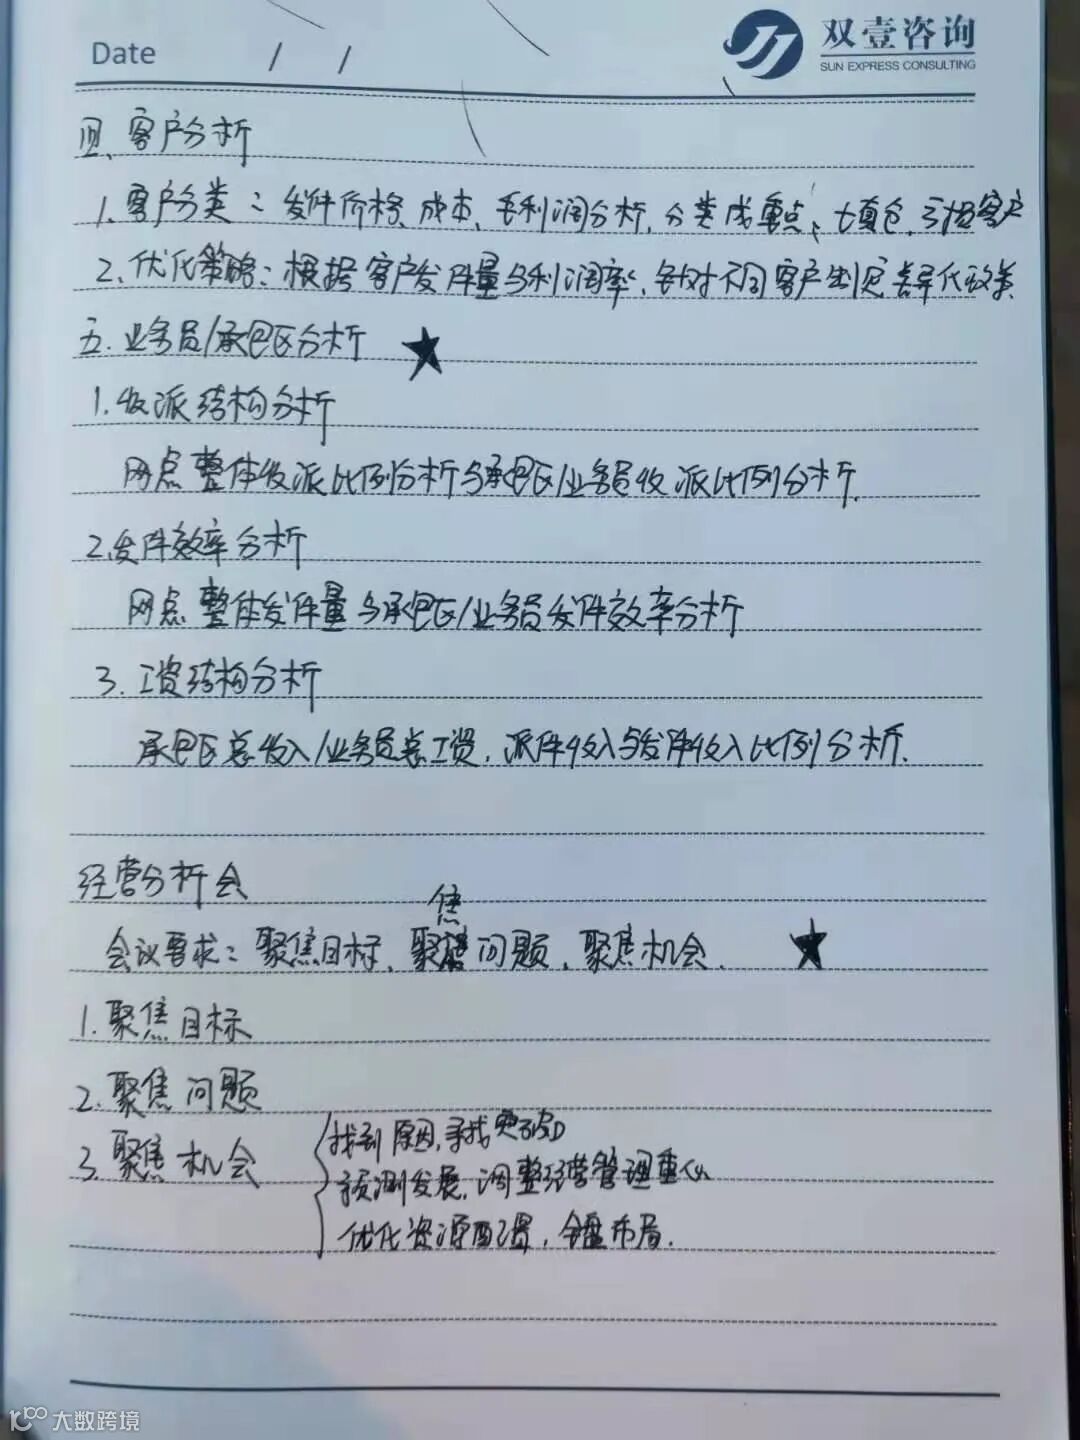 Date / /
双壹咨询
SUN EXPRESS CONSULTING
四、客户分析
1. 客户分类：发件价格、成本、毛利润分析，分类成重点、填仓、亏损客户
2. 优化策略：根据客户发件量与利润率，针对不同客户制定差异化政策
五. 业务员/承包区分析 ★
1. 收派结构分析
网点整体收派比例分析与承包区/业务员收派比例分析.
2. 发件效率分析
网点整体发件量与承包区/业务员发件效率分析
3. 工资结构分析
承包区总收入/业务员总工资，派件收入与发件收入比例分析.
经营分析会
焦
会议要求：聚焦目标、聚 问题、聚焦机会. ★
1. 聚焦目标
2. 聚焦问题
3. 聚焦机会
找到原因，寻找突破口
预测发展，调整经营管理重心
优化资源配置，全盘布局.
大数跨境